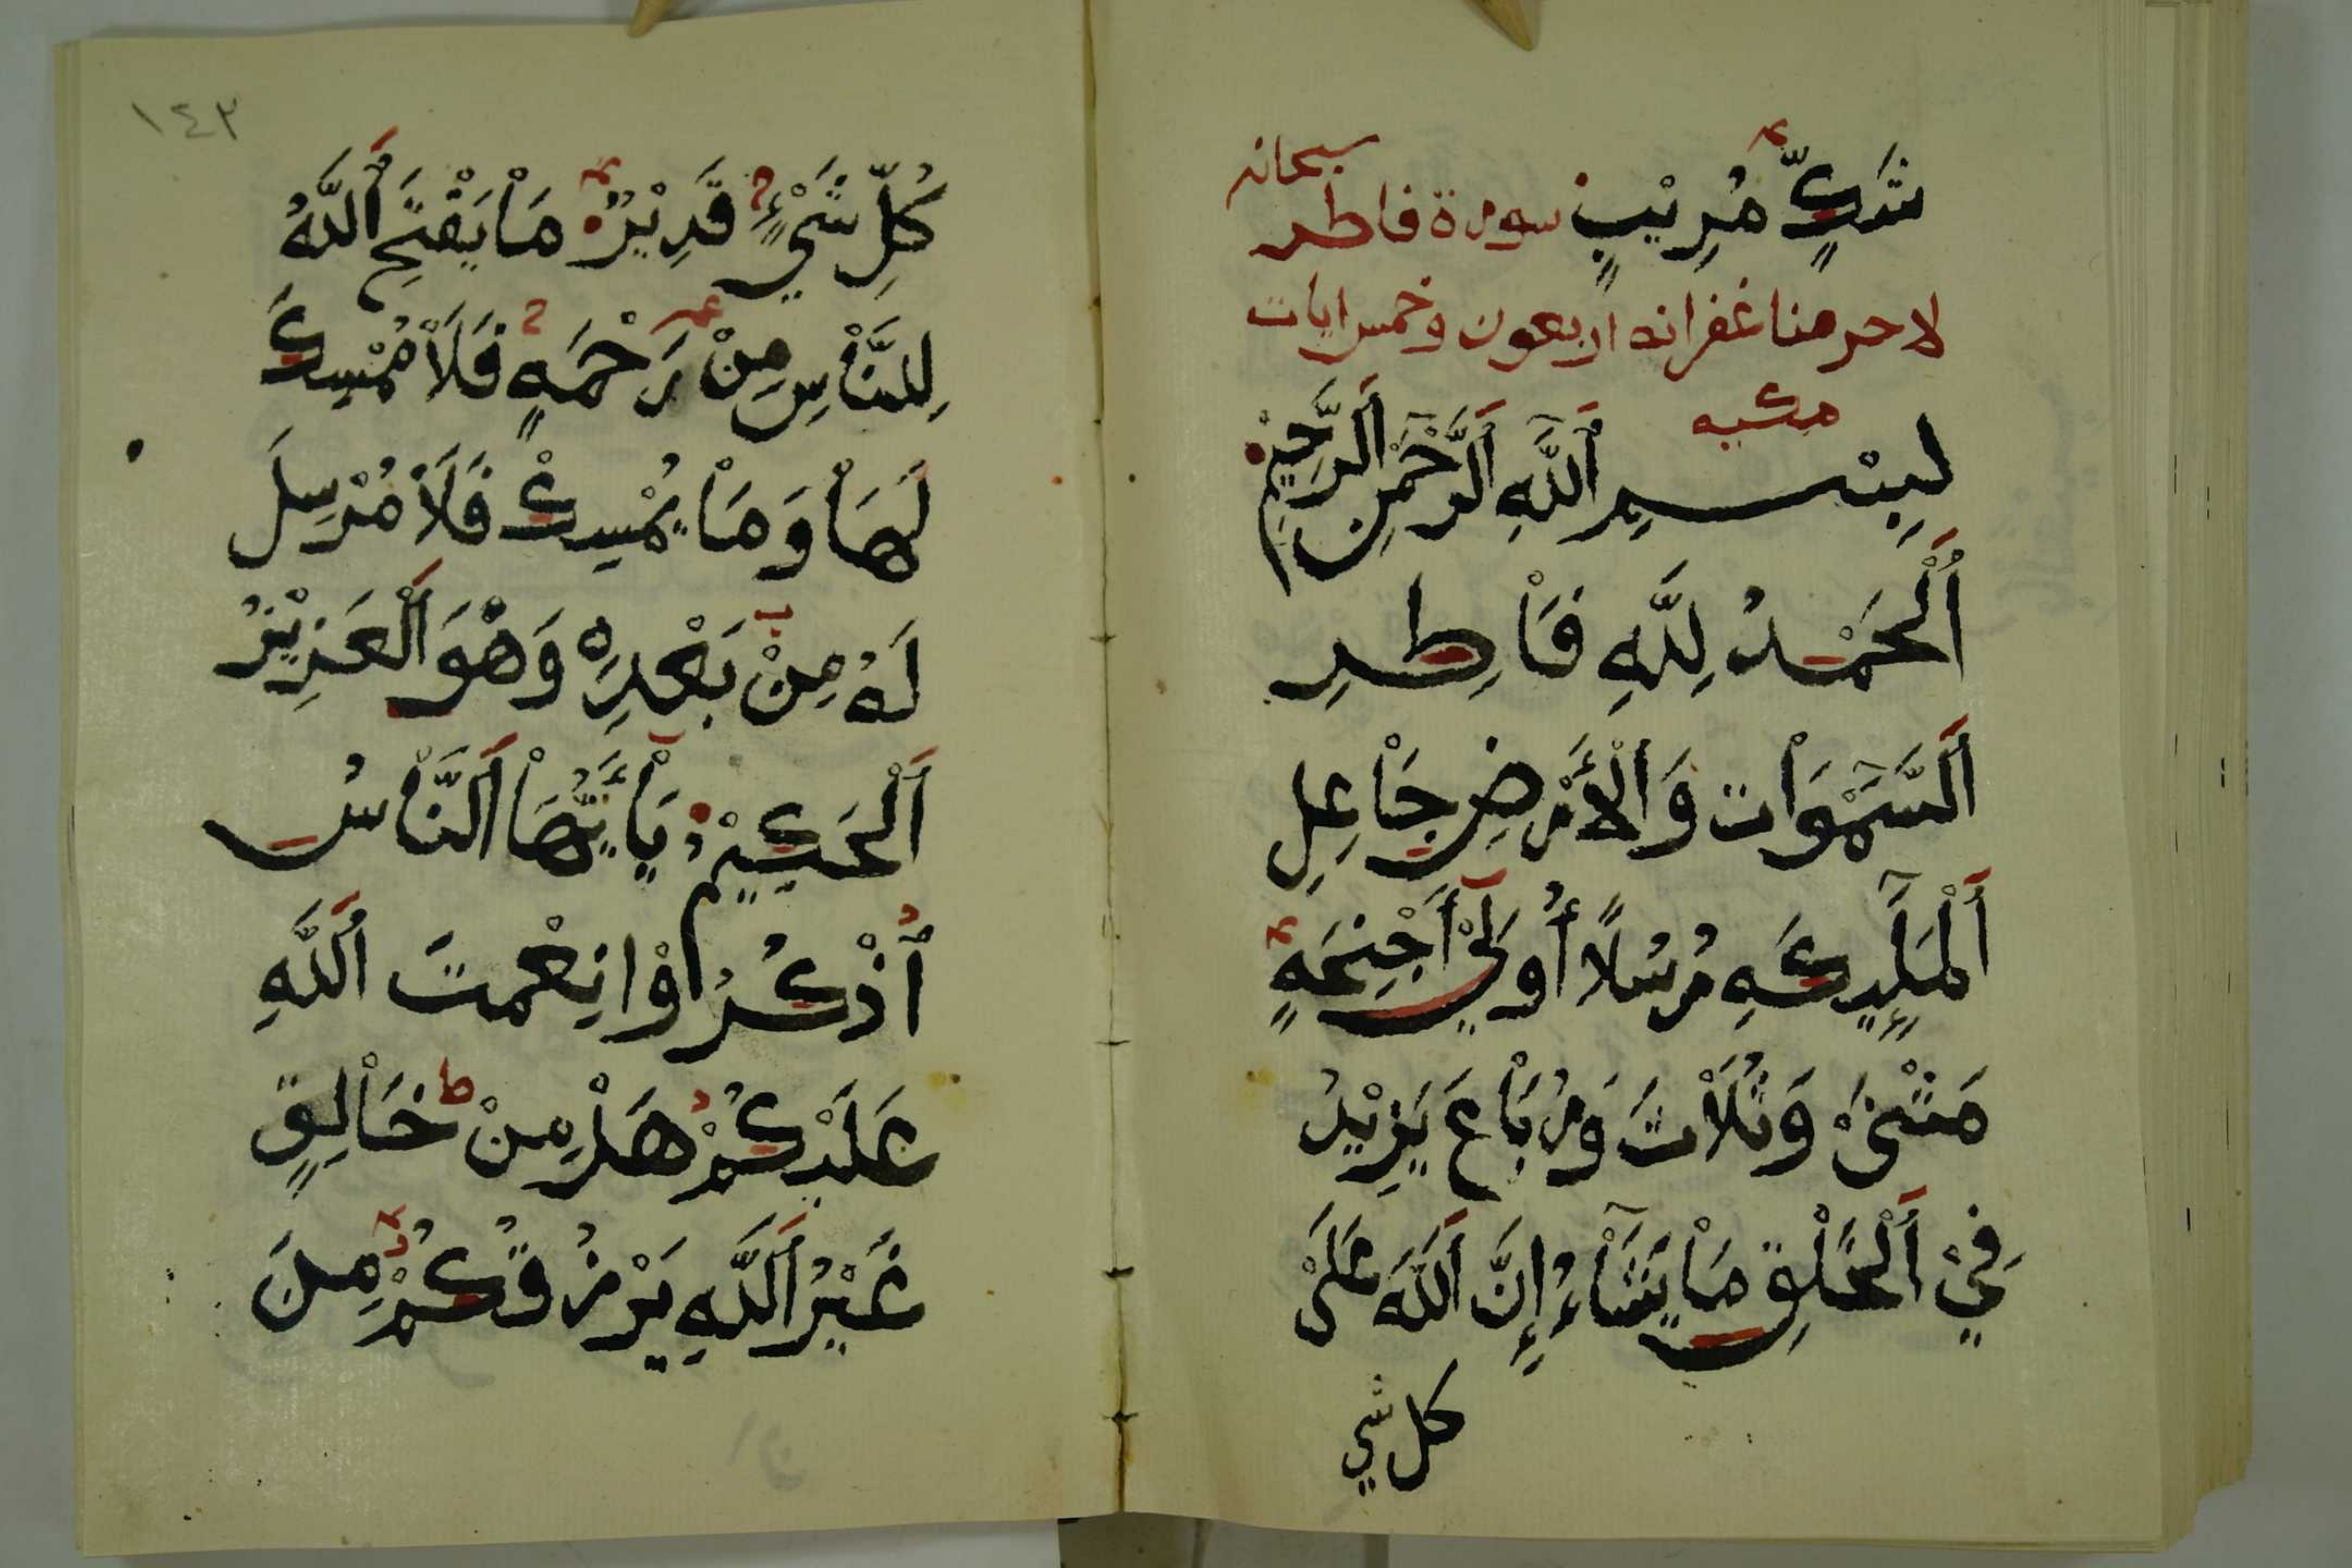 شَكٍّ مُرِيْبٍ سورة فاطر سبحانه
لا حرمنا غفرانه اربعون وخمس ايات
مكيه
بِسْمِ اَللَّهِ اَلرَّحْمٰنِ اَلرَّحِيْمِ
اَلْحَمْدُ لِلَّهِ فَاْطِرِ
اَلسَّمٰوَاْت وَاْلأَرْضِ جَاْعِلِ
اَلْمَلٰٓئِكَةِ رُسُلاً أُولِيْ أَجْنِحَةٍ
مَثْنَىْ وَثُلَاْثَ وَرُبَاْعَ يَزِيْدُ
فِيْ اَلْخَلْقِ مَاْ يَشَآءُ إِنَّ اَللَّهَ عَلَىْ
كل شي
١٤٣
كُلِّ شَيْءٍ قَدِيْرٌ مَاْ يَفْتَحِ اَللَّهُ
لِلنَّاْسِ مِنْ رَحْمَةٍ فَلَاْ مُمْسِكَ
لَهَاْ وَمَاْ يُمْسِكْ فَلَاْ مُرْسِلَ
لَهُ مِنْ بَعْدِهِ وَهْوَ اَلْعَزِيْزُ
اَلْحَكِيْمُ يَاْأَيُّهَاْ اَلنَّاْسُ
اُذْكُرُوْا نِعْمتَ اَللَّهِ
عَلَيْكُمْ هَلْ مِنْ خَاْلِقٍ
غَيْرُ اَللَّهِ يَرْزُقُكُمْ مِنَ